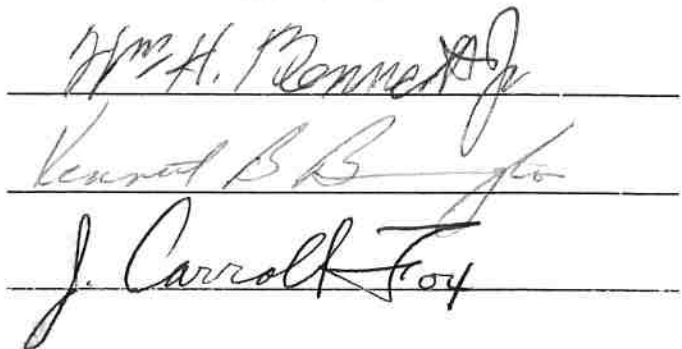 Wm H. Bennett Jr
Kenneth B
J. Carroll Fox